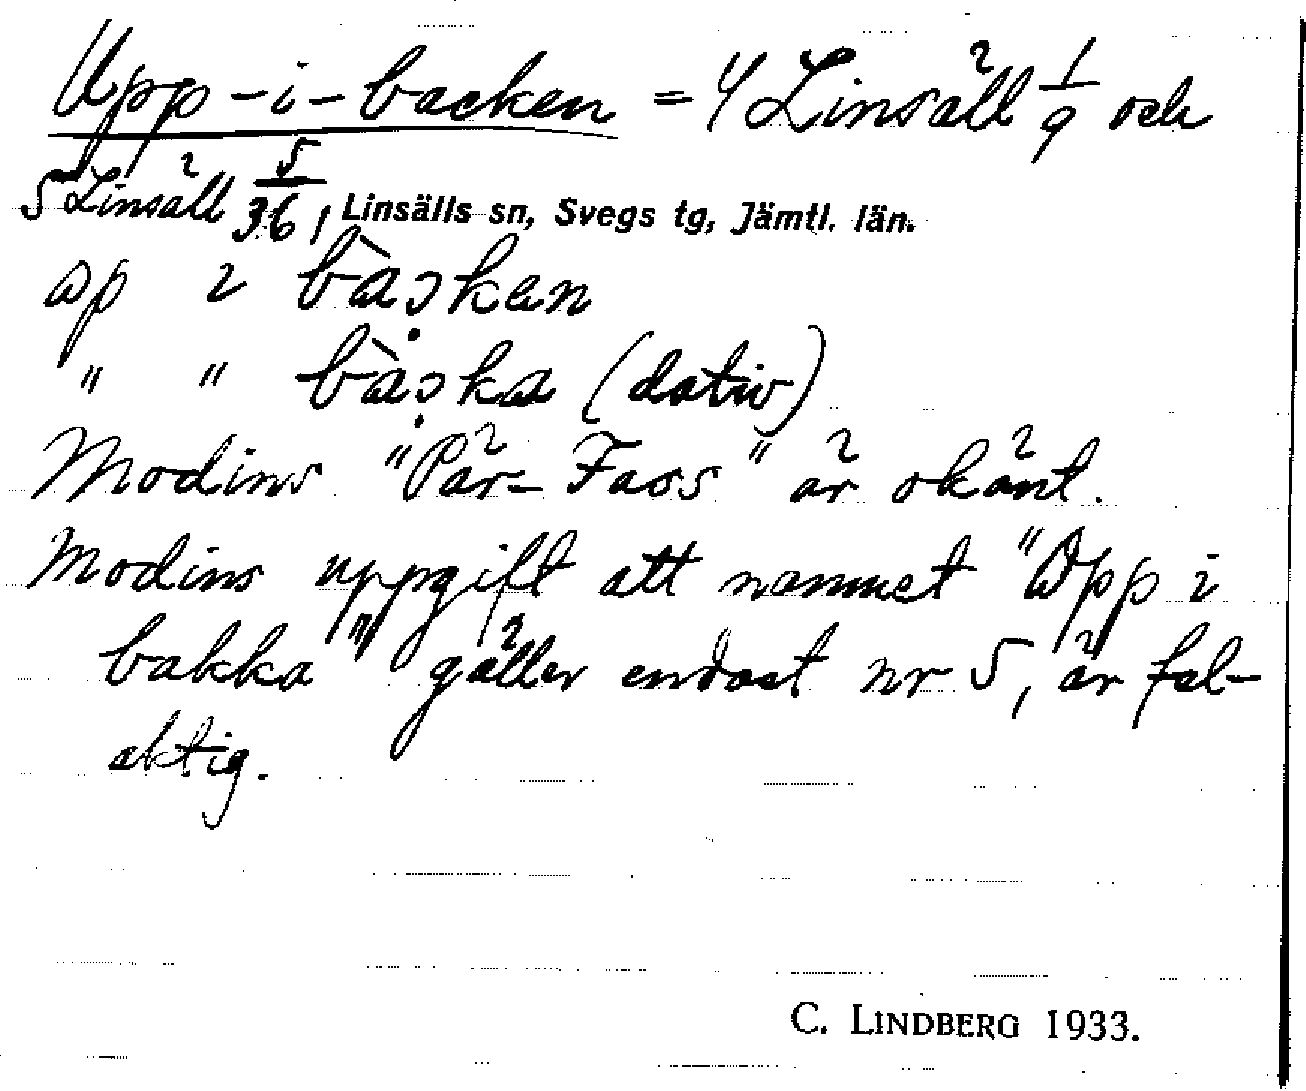 Upp-i-backen = 4 Linsäll 1/9 och
5 Linsäll 5/36, Linsälls sn, Svegs tg, Jämtl. län.
ɷp i bàɔ̣kɐn
" " bàɔ̣ka (dativ)
Modins "Pär-Fass" är okänt.
Modins uppgift att namnet "Opp i
bakka" gäller endast nr 5, är fel-
aktig.
C. LINDBERG 1933.